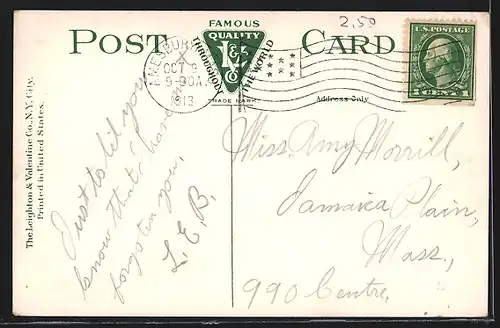 2.50
FAMOUS
QUALITY
THROUGHOUT
THE WORLD
L&V
Co
TRADE MARK
POST CARD
AMESBURY
OCT 9
9-30A
1913
U.S. POSTAGE
1 CENT 1
Address Only
The Leighton & Valentine Co., N.Y. City.
Printed in United States.
Just to let you
know that I haven't
forgotten you,
L.E.B.
Miss Amy Morrill,
Jamaica Plain,
Mass,
990 Centre,